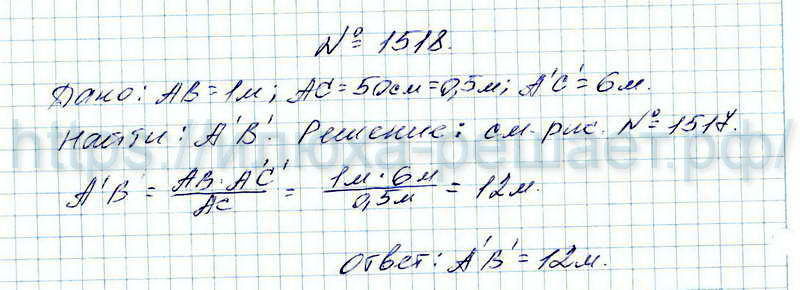 № 1518.
Дано: AB = 1м; AC = 50см = 0,5м; A'C' = 6м.
Найти: A'B'. Решение: см. рис. № 1517.
A'B' = AB · A'C' / AC = 1м · 6м / 0,5м = 12м.
Ответ: A'B' = 12м.